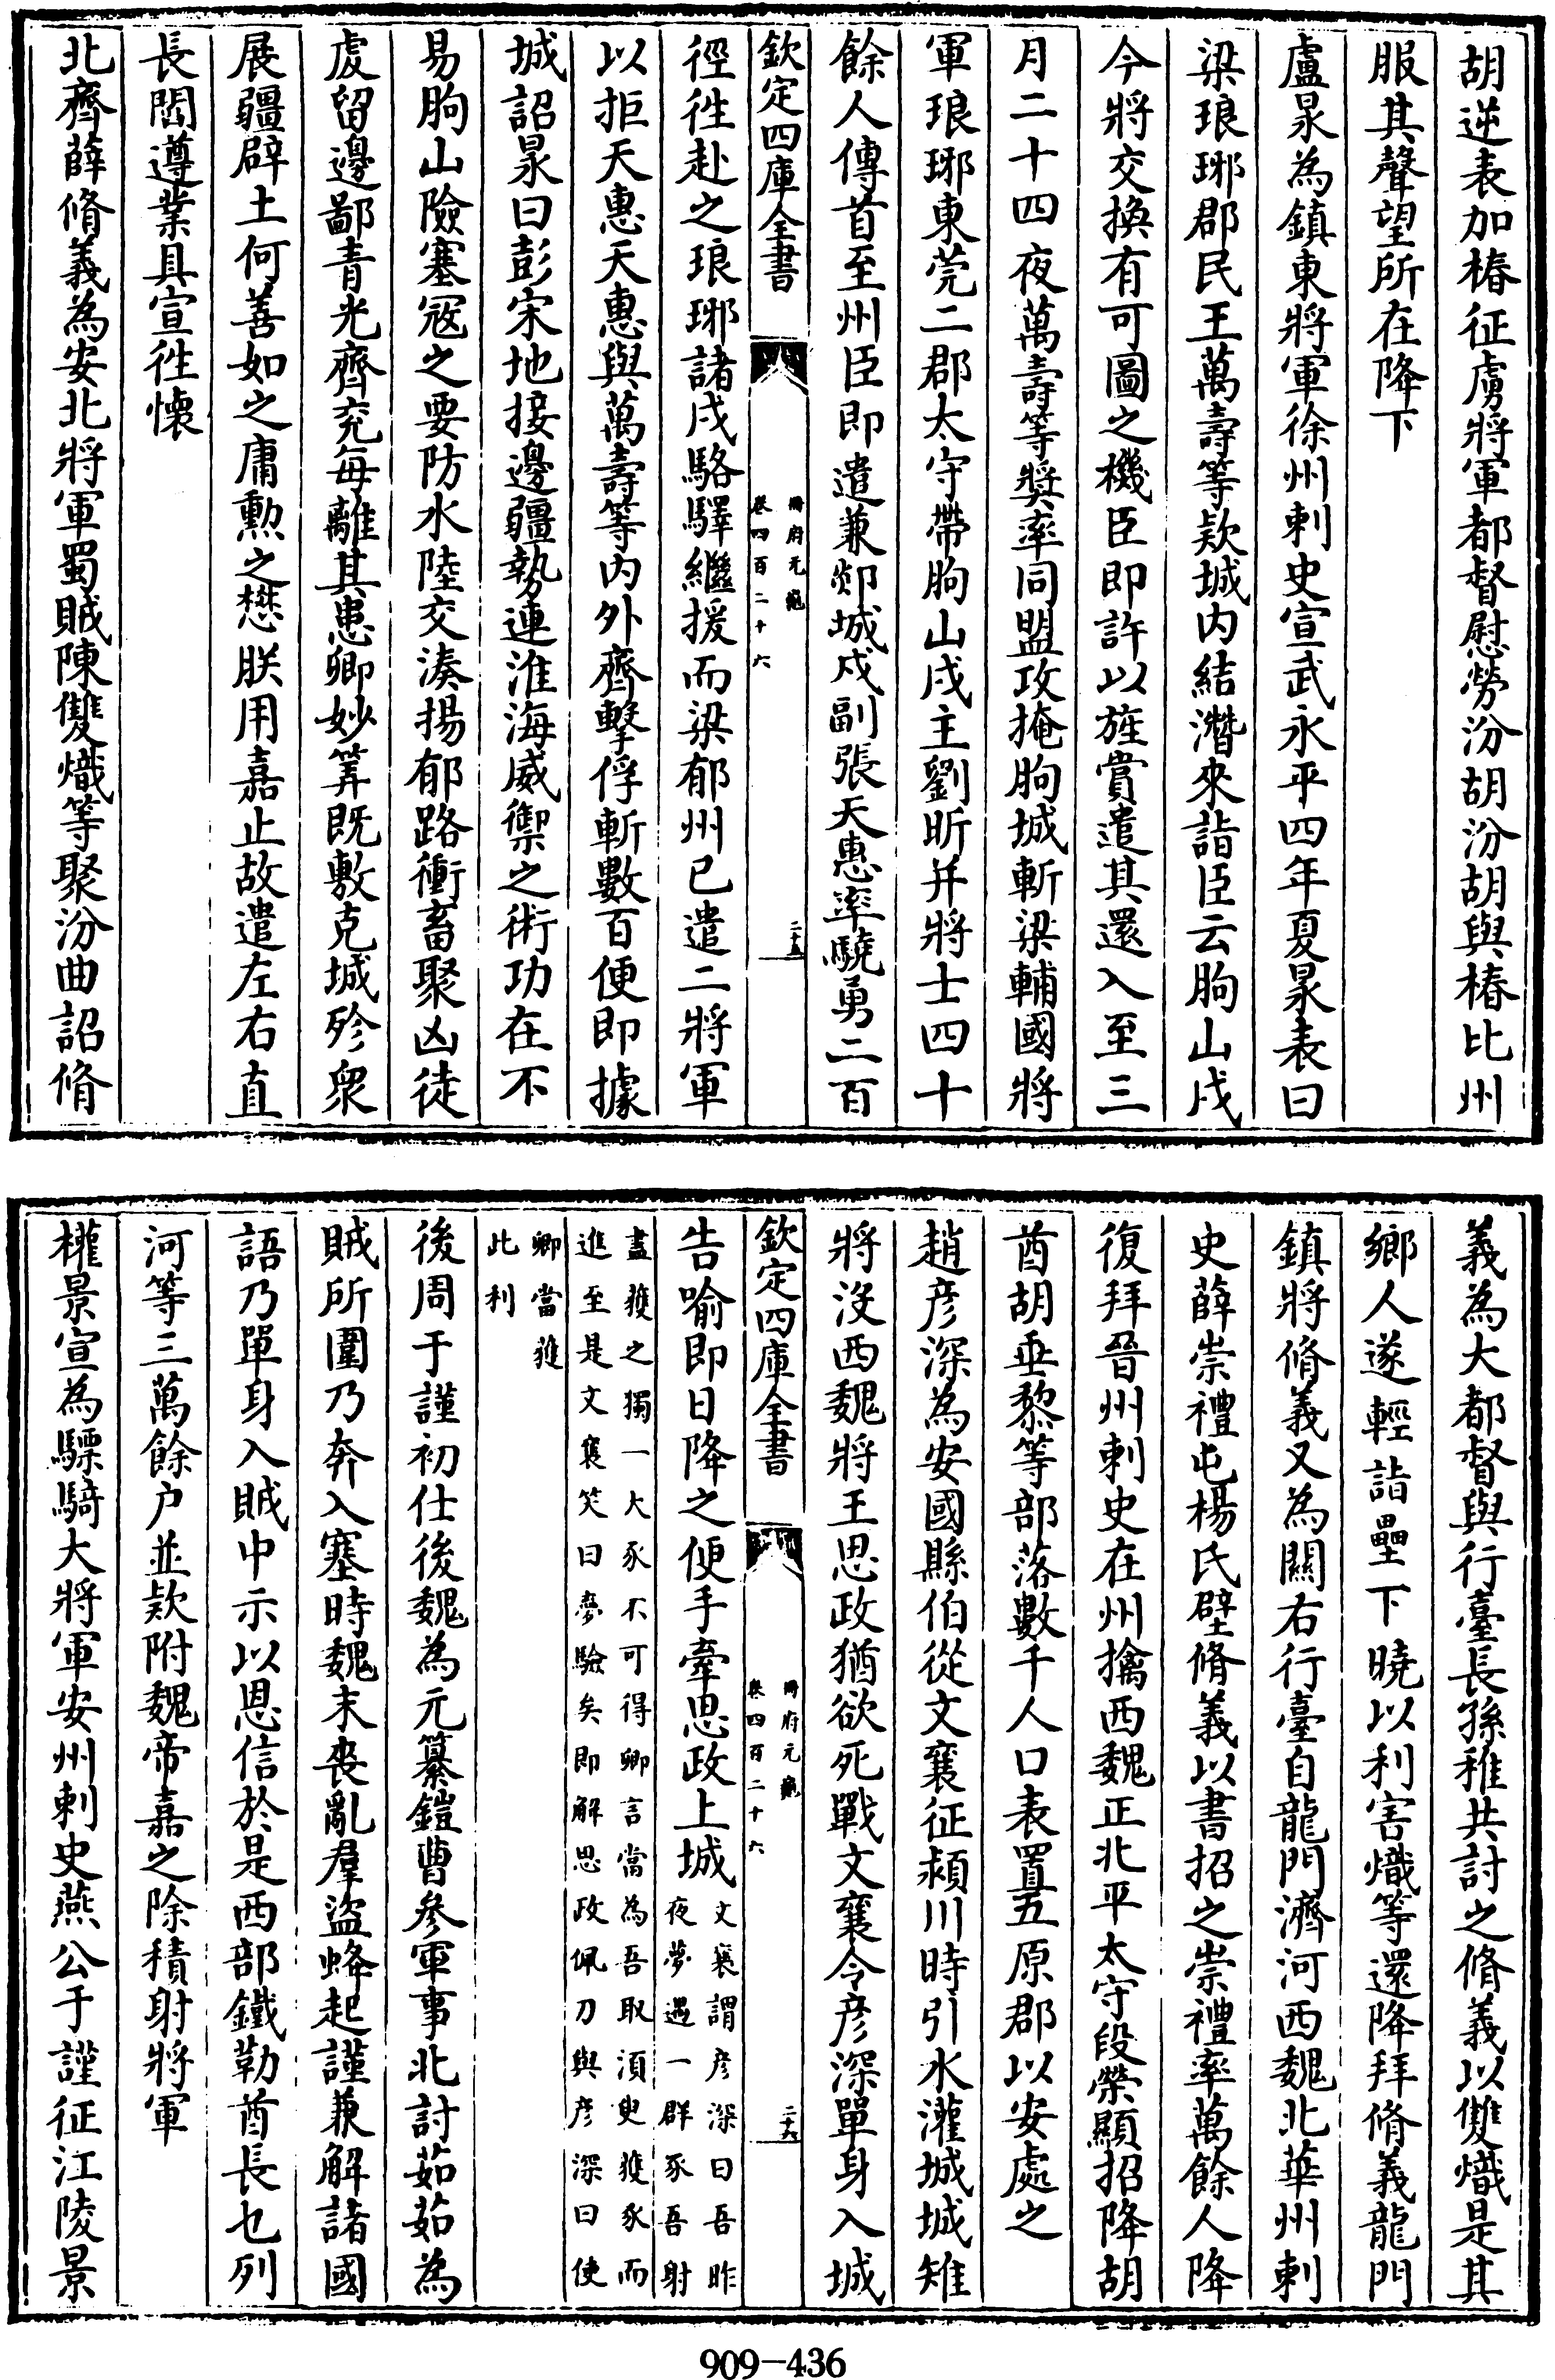 胡逆表加椿征虜將軍都督慰勞汾胡汾胡與椿比州
服其聲望所在降下
盧昶為鎮東將軍徐州刺史宣武永平四年夏昶表曰
梁琅琊郡民王萬壽等欵城内結潛來詣臣云朐山戍
今將交換有可圖之機臣即許以旌賞遣其還入至三
月二十四夜萬壽等獎率同盟攻掩朐城斬梁輔國將
軍琅琊東莞二郡太守帶朐山戍主劉昕并將士四十
餘人傳首至州臣即遣兼郯城戍副張天惠率驍勇二百
欽定四庫全書
冊府元龜
卷四百二十六
二十五
徑徃赴之琅琊諸戍駱驛繼援而梁郁州已遣二將軍
以拒天惠天惠與萬壽等内外齊擊俘斬數百便即據
城詔昶曰彭宋地接邊疆勢連淮海威禦之術功在不
易朐山險塞寇之要防水陸交湊揚郁路衝畜聚凶徒
䖍留邊鄙青光齊兖每離其患卿妙筭既敷克城殄衆
展疆辟土何善如之庸勲之懋朕用嘉止故遣左右直
長閻遵業具宣徃懷
北齊薛脩義為安北將軍蜀賊陳雙熾等聚汾曲詔脩
義為大都督與行臺長孫稚共討之脩義以雙熾是其
鄉人遂輕詣壘下曉以利害熾等還降拜脩義龍門
鎮將脩義又為關右行臺自龍門濟河西魏北華州刺
史薛崇禮屯楊氏壁脩義以書招之崇禮率萬餘人降
復拜晉州刺史在州擒西魏正北平太守段榮顯招降胡
酋胡垂黎等部落數千人口表置五原郡以安處之
趙彦深為安國縣伯從文襄征潁川時引水灌城城雉
將沒西魏將王思政猶欲死戰文襄令彦深單身入城
欽定四庫全書
冊府元龜
卷四百二十六
二十六
告喻即日降之便手牽思政上城文襄謂彦深曰吾昨
夜夢遇一群豕吾射
盡獲之獨一大豕不可得卿言當為吾取須臾獲豕而
進至是文襄笑曰夢驗矣即解思政佩刀與彦深曰使
卿當獲
此利
後周于謹初仕後魏為元纂鎧曹參軍事北討茹茹為
賊所圍乃奔入塞時魏末喪亂羣盜蜂起謹兼解諸國
語乃單身入賊中示以恩信於是西部鐵勒酋長乜列
河等三萬餘户並欵附魏帝嘉之除積射將軍
權景宣為驃騎大將軍安州刺史燕公于謹征江陵景
909-436